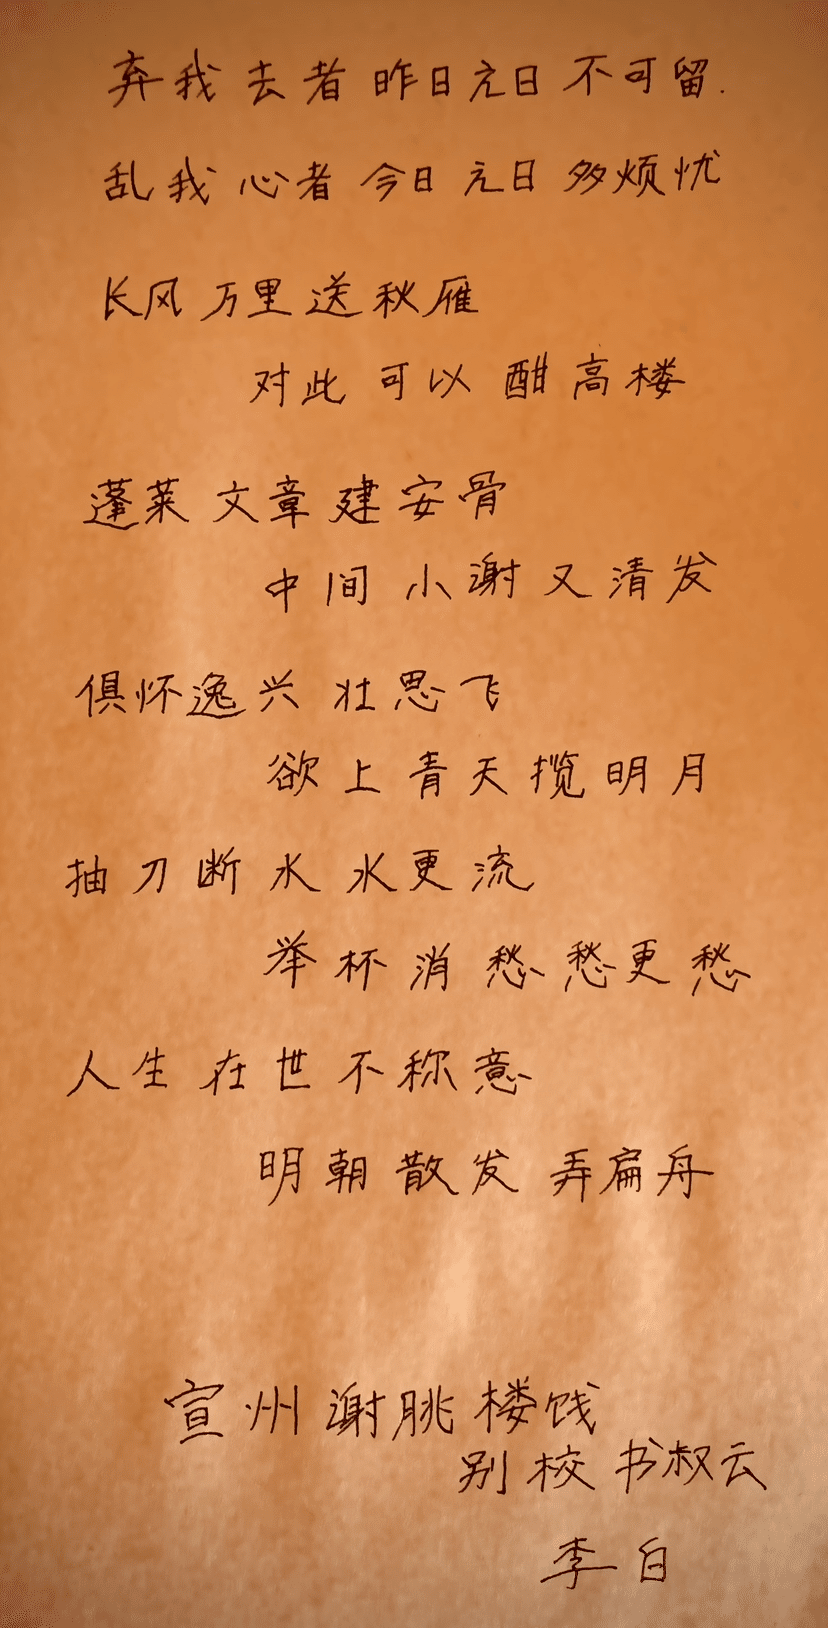 弃我去者昨日之日不可留.
乱我心者今日之日多烦忧
长风万里送秋雁
对此可以酣高楼
蓬莱文章建安骨
中间小谢又清发
俱怀逸兴壮思飞
欲上青天揽明月
抽刀断水水更流
举杯消愁愁更愁
人生在世不称意
明朝散发弄扁舟
宣州谢朓楼饯
别校书叔云
李白